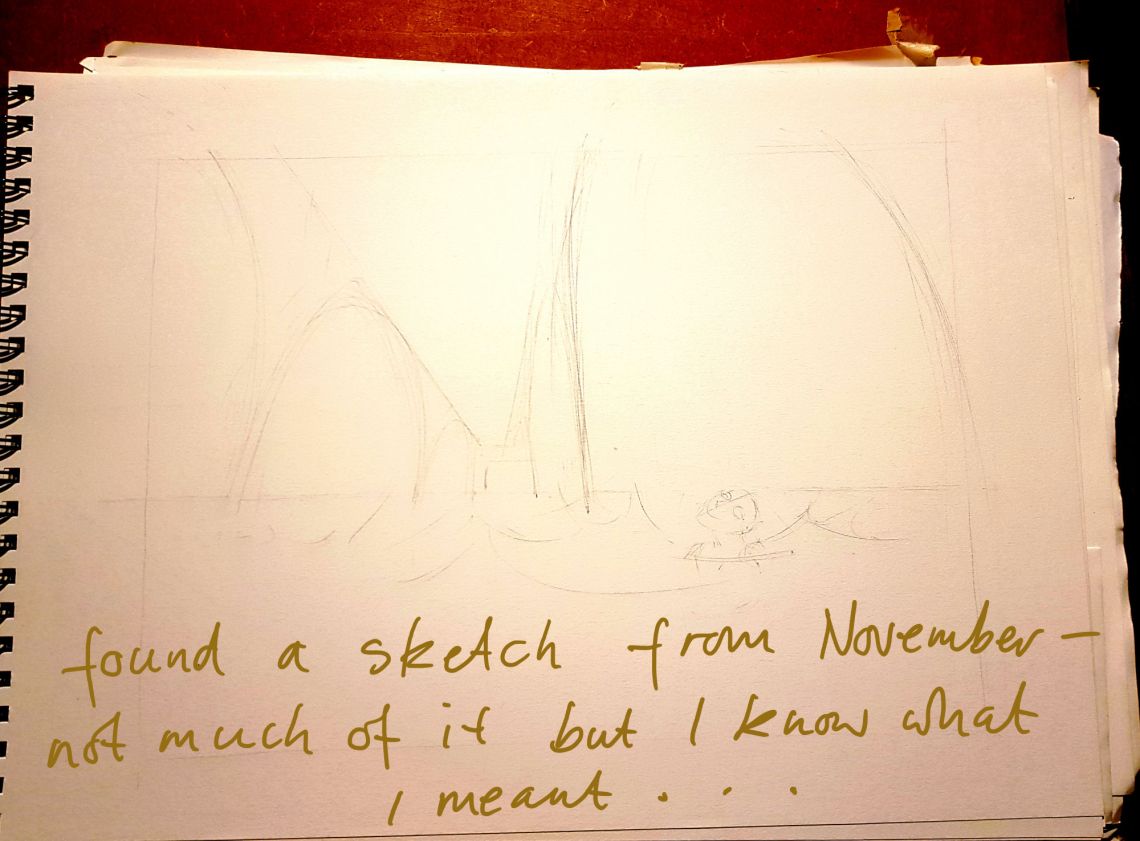 found a sketch from November -
not much of it but I know what
I meant . . .